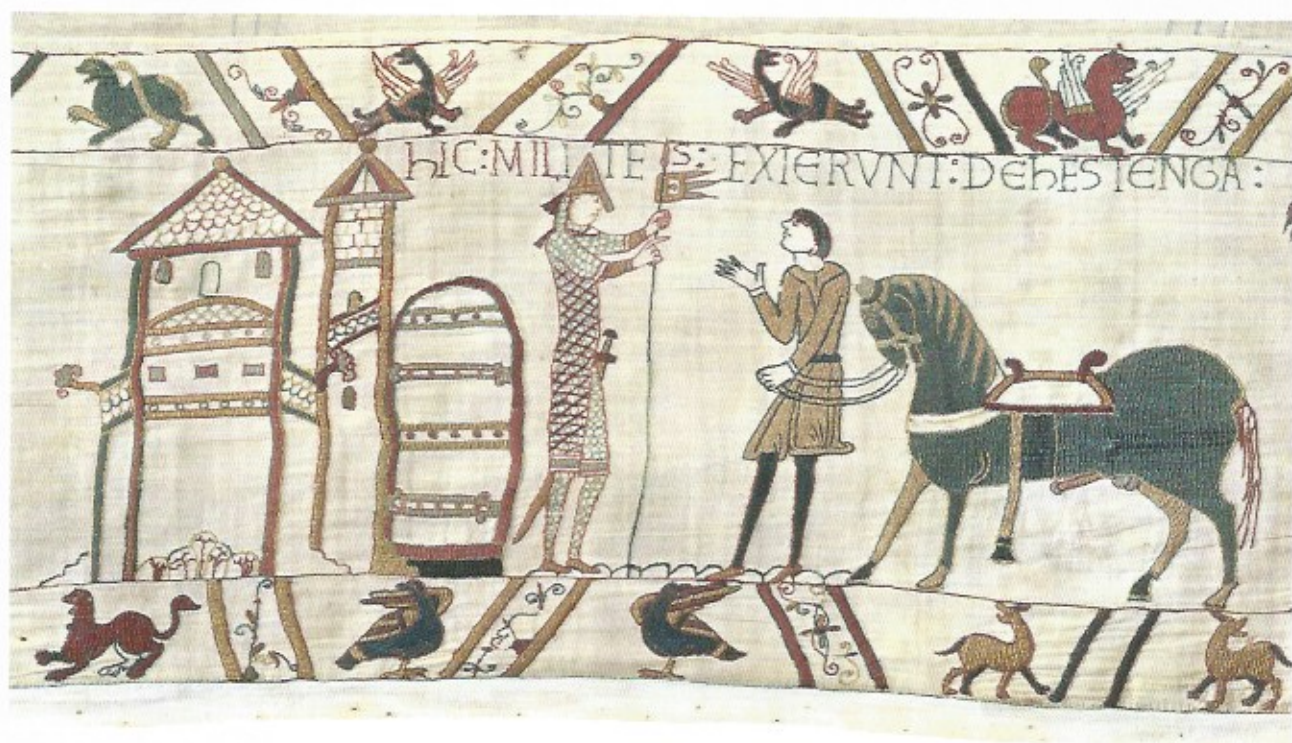 hIC:MILITES: EXIERVNT:DEhESTENGA: